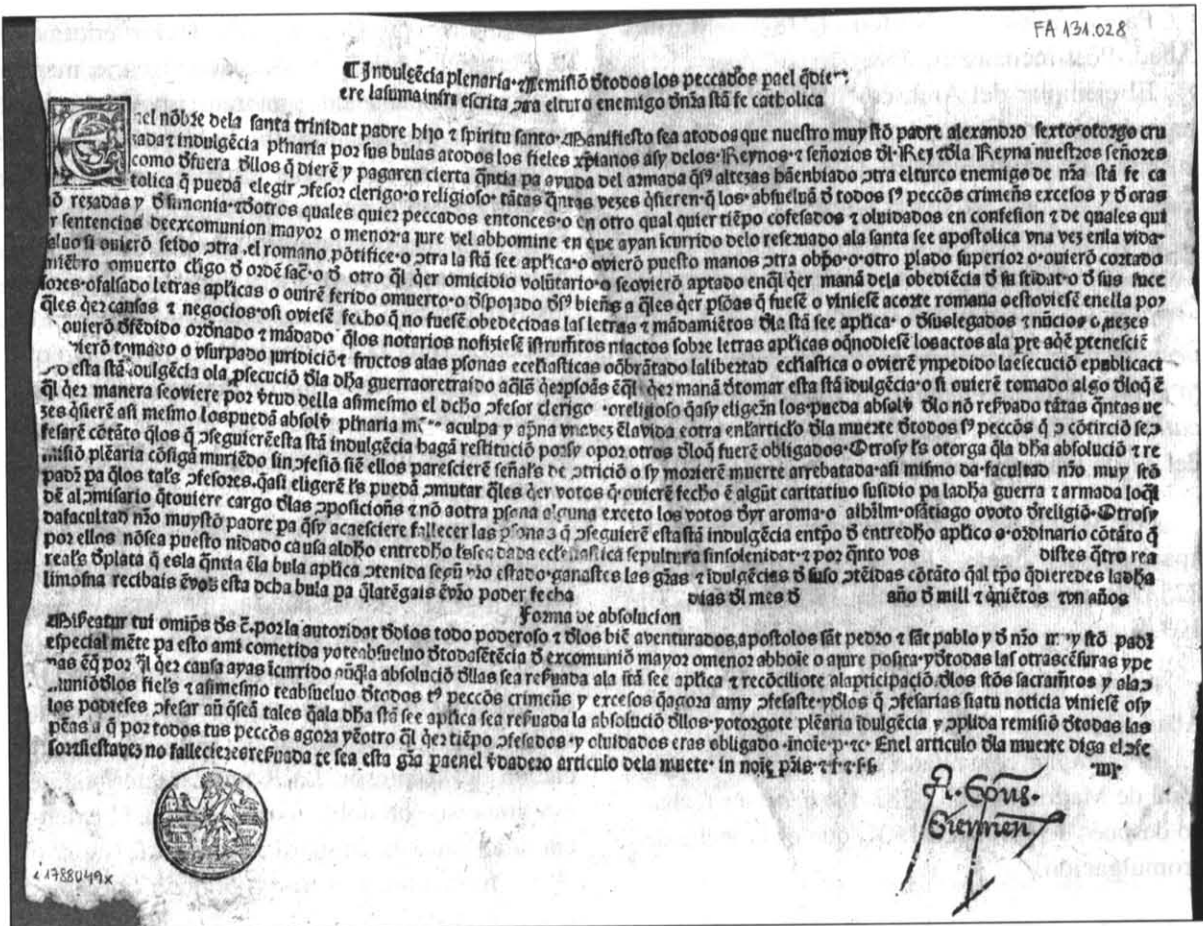 FA 131.028
¶ Indulgẽcia plenaria · ⁊ Remissiõ đ todos los peccados pa el q̃ die
ere la suma infra escrita ↄtra el turco enemigo đ nr̃a stã fe catholica
el nõbre dela santa trinidat padre hijo ⁊ spiritu santo · Manifiesto sea a todos que nuestro muy stõ padre alexandro sexto · otorgo cru
zada ⁊ indulgẽcia plñaria por sus bulas a todos los fieles xp̃ianos asy delos · Reynos · ⁊ señorios đl · Rey ⁊ đla Reyna nuestros señores
como đ fuera đllos q̃ dierẽ y pagaren cierta q̃ntia pa ayuda del armada q̃ sꝰ altezas hã enbiado ↄtra el turco enemigo de nr̃a stã fe ca
tolica q̃ puedã elegir ↄfesor clerigo · o religioso · tãtas q̃ntas vezes q̃sieren · q̃ los absueluã đ todos sꝰ peccõs crimeñs excesos y đ oras
nõ rezadas y đ simonia · ⁊ đ otros quales quier peccados entonces · o en otro qual quier tiẽpo cõfesados ⁊ oluidados en confesion ⁊ de quales qui
r sentencias de excomunion mayor o menor · a jure vel ab homine en que ayan icurrido delo reseruado ala santa see apostolica vna vez enla vida ·
aluo si ouierõ seido ↄtra . el romano põtifice · o ↄtra la stã see apłica · o ouierõ puesto manos ↄtra obp̃o · o otro plado superior o · ouierõ cortado
miẽbro o muerto cłigo đ ordẽ sac̃ · o đ otro q̃l q̃er omicidio volũtario · o se ouierõ aptado en q̃l q̃er manã dela obediẽcia đ su stidat · o đ sus suce
sores · o falsado letras apłicas o ouirẽ ferido o muerto · o đspojado đ sꝰ bieñs a q̃les q̃er psõas q̃ fuesẽ o viniesẽ a corte romana o estouiesẽ enella por
q̃les q̃er causas ⁊ negocios · o si ouiesẽ fecho q̃ no fuesẽ obedecidas las letras ⁊ mãdamiẽtos đla stã see apłica · o đ sus legados ⁊ nũcios
ouierõ đfẽdido ordnado ⁊ mãdado q̃ los notarios no fiziesẽ istrum̃tos ni actos sobre letras apłicas o q̃ no diesẽ los actos ala pte a q̃ẽ ptenesciẽ
ierõ tomado o vsurpado juridiciõ ⁊ fructos alas psonas ecłesiasticas o q̃brãtado la libertad ecłesiastica o ouierẽ ynpedido la esecuciõ e publicaci
o esta stã idulgẽcia o la ↄsecuciõ đla dħa guerra o retraido a q̃lls q̃er psõas ẽ q̃l q̃er manã đ tomar esta stã idulgẽcia · o si ouierẽ tomado algo đlo q̃ ẽ
q̃l q̃er manera se ouiere por ṽtud della asimesmo el dcħo ↄfesor clerigo · o religioso q̃ asy eligerẽ los pueda absolṽ đlo nõ resṽado tãtas q̃ntas ve
zes q̃sierẽ asi mesmo los puedã absolṽ plñaria mẽ a culpa y a pena vna vez ẽ la vida e otra en el articło đla muerte đ todos sꝰ peccõs q̃ ↄ cõtriciõ se ↄ
fesarẽ cõtãto q̃ los q̃ ↄseguierẽ esta stã indulgẽcia hagã restituciõ por sy o por otros đlo q̃ fuerẽ obligados · Otrosy ls otorga q̃ la dħa absoluciõ ⁊ re
misiõ plẽaria cõsigã muriẽdo sin ↄfesiõ siẽ ellos parescierẽ señals de ↄtriciõ o sy morierẽ muerte arrebatada · asi mismo da · facultad nr̃o muy stõ
padr̃ pa q̃ los tals ↄfesores · q̃ asi eligerẽ ls puedã ↄmutar q̃les q̃er votos q̃ · ouierẽ fecho ẽ algũt caritatiuo susidio pa la dħa guerra ⁊ armada lo q̃l
dẽ al ↄmisario q̃ touiere cargo đlas ↄposicioñs ⁊ nõ a otra psona alguna exceto los votos đ yr a roma · o a ihrlm · o sãtiago o voto đ religiõ · Otrosy
da facultad nr̃o muy stõ padre pa q̃ sy acaesciere fallecer las psonas a q̃ ↄseguierẽ esta stã indulgẽcia en tp̃o đ entredħo apłico o · ordinario cõtãto q̃
por ellos nõ sea puesto ni dado causa al dħo entredħo ls sea dada ecłesiastica sepultura sin solenidat · ⁊ por q̃nto vos distes q̃tro rea
reals đ plata q̃ es la q̃ntia ẽ la bula apłica ↄtenida segũ vr̃o estado · ganastes las gr̃as ⁊ idulgẽcias đ suso ↄtẽidas cõtãto q̃ al tp̃o q̃ dieredes la dħa
limosna recibais ẽ vos esta dcha bula pa q̃ la tẽgais ẽ vr̃o poder fecha dias đl mes đ año đ mill ⁊ q̃niẽtos ⁊ vn años
Forma de absolucion
Misereatur tui omĩps đs ⁊c̃ . por la autoridat đ dios todo poderoso ⁊ đlos biẽ aventurados , apostolos sãt pedro ⁊ sãt pablo y đ nr̃o muy stõ padr̃
especial mẽte pa esto ami cometida yo te absueluo đ toda sẽtẽcia đ excomuniõ mayor o menor ab hoĩe o a jure posita · y đ todas las otras cẽsuras y pe
nas ẽ q̃ por q̃l q̃er causa ayas icurrido aũq̃ la absoluciõ đllas sea resṽada ala stã see apłica ⁊ recõciliote ala pticipaciõ đlos stõs sacram̃tos y ala ↄ
muniõ đlos fiels ⁊ asimesmo te absueluo đ todos tꝰ peccõs crimeñs y excesos q̃ agora a my ↄfesaste · y đlos q̃ ↄfesarias si a tu noticia viniesẽ o sy
los podieses ↄfesar añ q̃ seã tales q̃ ala dħa stã see apłica sea resṽada la absoluciõ đllos · y otorgote plẽaria idulgẽcia y ↄplida remisiõ đ todas las
pẽas a q̃ por todos tus peccõs agora y ẽ otro q̃l q̃er tiẽpo ↄfesados · y oluidados eras obligado · in oĩe · p · ⁊c · Enel articulo đla muerte diga el ↄfe
sor si esta vez no fallecieres resṽada te sea esta gr̃a pa enel ṽdadero articulo dela muete · in noĩe pr̃is · ⁊ · f · ⁊ · s · s
i 1788049x